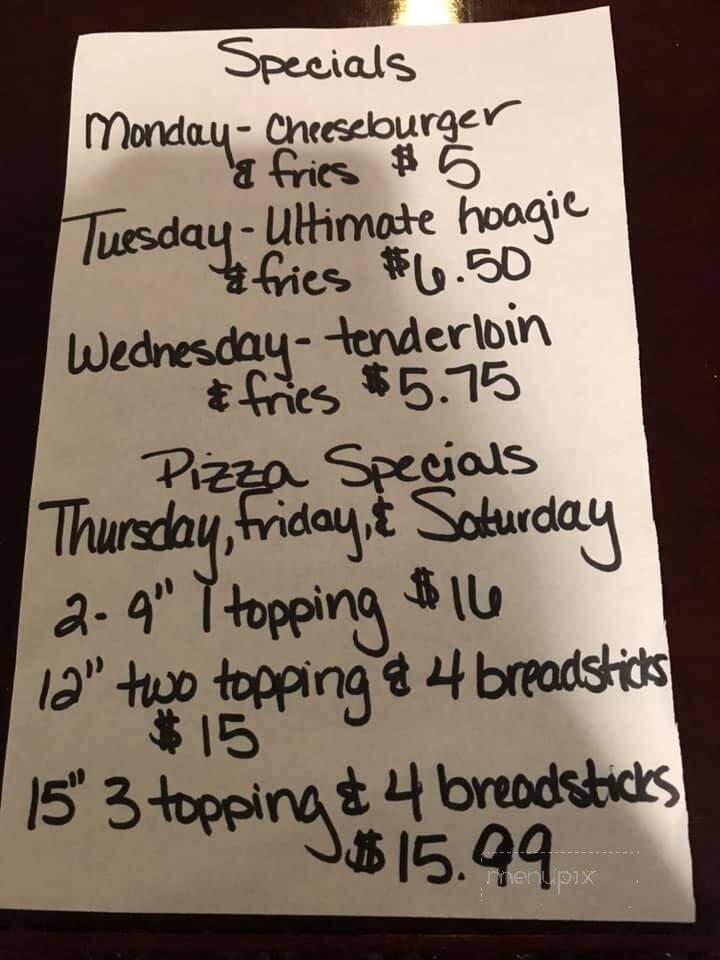 Specials
Monday - Cheeseburger
& fries $5
Tuesday - Ultimate hoagie
& fries $6.50
Wednesday - tenderloin
& fries $5.75
Pizza Specials
Thursday, Friday, & Saturday
2 - 9" 1 topping $16
12" two topping & 4 breadsticks
$15
15" 3 topping & 4 breadsticks
$15.99
menupix